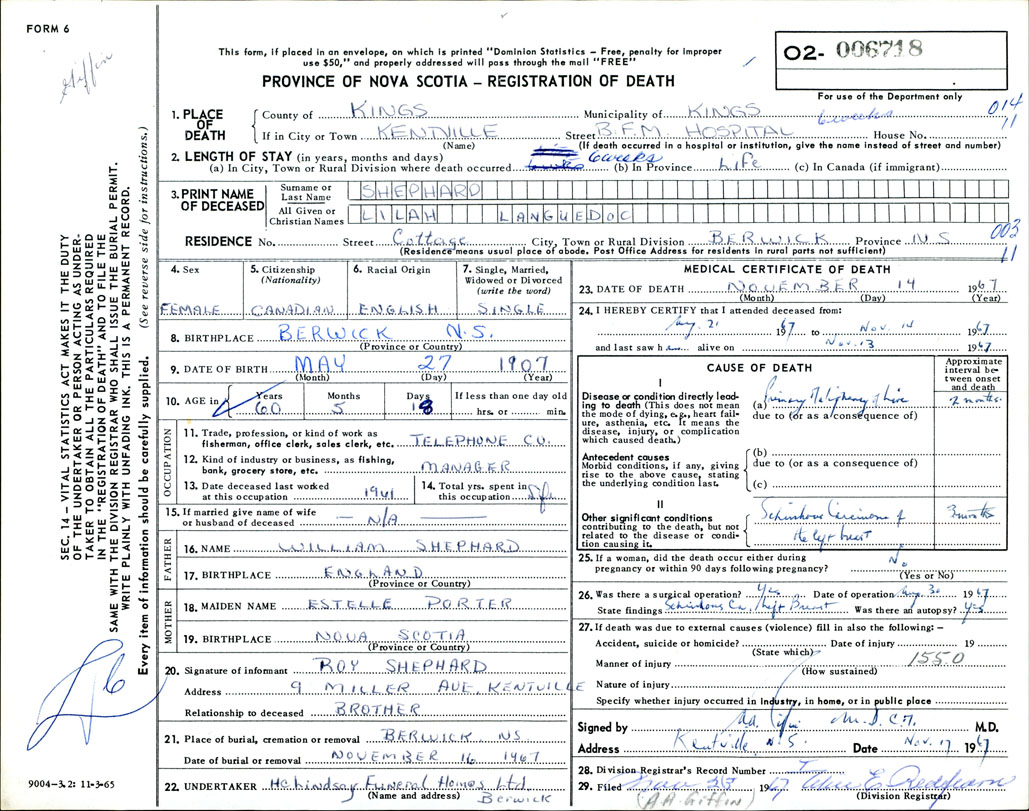 FORM 6
Giffin
This form, if placed in an envelope, on which is printed "Dominion Statistics – Free, penalty for improper
use $50," and properly addressed will pass through the mail "FREE"
PROVINCE OF NOVA SCOTIA – REGISTRATION OF DEATH
02- 006718
For use of the Department only
014
11
1. PLACE OF DEATH
County of KINGS Municipality of KINGS
6 weeks
If in City or Town KENTVILLE Street B.F.M. HOSPITAL House No.
(Name) (If death occurred in a hospital or institution, give the name instead of street and number)
2. LENGTH OF STAY (in years, months and days)
(a) In City, Town or Rural Division where death occurred 6 weeks (b) In Province Life (c) In Canada (if immigrant)
3. PRINT NAME OF DECEASED
Surname or Last Name SHEPHARD
All Given or Christian Names LILAH LANGUEDOC
RESIDENCE No. Street Cottage City, Town or Rural Division BERWICK Province NS
003
11
(Residence means usual place of abode. Post Office Address for residents in rural parts not sufficient)
4. Sex FEMALE
5. Citizenship (Nationality) CANADIAN
6. Racial Origin ENGLISH
7. Single, Married, Widowed or Divorced (write the word) SINGLE
8. BIRTHPLACE BERWICK N.S.
(Province or Country)
9. DATE OF BIRTH MAY 27 1907
(Month) (Day) (Year)
10. AGE in Years 60 Months 5 Days 18 If less than one day old hrs. or min.
OCCUPATION
11. Trade, profession, or kind of work as fisherman, office clerk, sales clerk, etc. TELEPHONE CO.
12. Kind of industry or business, as fishing, bank, grocery store, etc. MANAGER
13. Date deceased last worked at this occupation 1961
14. Total yrs. spent in this occupation
15. If married give name of wife or husband of deceased – N/A –
FATHER
16. NAME WILLIAM SHEPHARD
17. BIRTHPLACE ENGLAND
(Province or Country)
MOTHER
18. MAIDEN NAME ESTELLE PORTER
19. BIRTHPLACE NOVA SCOTIA
(Province or Country)
20. Signature of informant ROY SHEPHARD
Address 9 MILLER AVE, KENTVILLE
Relationship to deceased BROTHER
21. Place of burial, cremation or removal BERWICK NS
Date of burial or removal NOVEMBER 16 1967
22. UNDERTAKER H.C. Lindsay Funeral Homes Ltd
(Name and address) Berwick
MEDICAL CERTIFICATE OF DEATH
23. DATE OF DEATH NOVEMBER 14 1967
(Month) (Day) (Year)
24. I HEREBY CERTIFY that I attended deceased from:
Aug. 21 1967 to Nov. 14 1967
and last saw her alive on Nov. 13 1967
CAUSE OF DEATH
Approximate interval between onset and death
I
Disease or condition directly leading to death (This does not mean the mode of dying, e.g., heart failure, asthenia, etc. It means the disease, injury, or complication which caused death.)
(a) Primary Malignancy of Liver 2 months
due to (or as a consequence of)
Antecedent causes
Morbid conditions, if any, giving rise to the above cause, stating the underlying condition last.
(b)
due to (or as a consequence of)
(c)
II
Other significant conditions contributing to the death, but not related to the disease or condition causing it.
Scirrhous Carcinoma of the left breast 3 months
25. If a woman, did the death occur either during pregnancy or within 90 days following pregnancy? No.
(Yes or No)
26. Was there a surgical operation? Yes Date of operation Aug. 30 1967
State findings Scirrhous Ca. left Breast Was there an autopsy? Yes
27. If death was due to external causes (violence) fill in also the following: –
Accident, suicide or homicide? Date of injury 19
(State which)
Manner of injury 155.0
(How sustained)
Nature of injury
Specify whether injury occurred in industry, in home, or in public place
Signed by M.D.C.M. M.D.
Address Kentville, N.S. Date Nov. 17 1967
28. Division Registrar's Record Number
29. Filed 1967
(Division Registrar)
(A.A. Giffin)
SEC. 14 – VITAL STATISTICS ACT MAKES IT THE DUTY
OF THE UNDERTAKER OR PERSON ACTING AS UNDER-
TAKER TO OBTAIN ALL THE PARTICULARS REQUIRED
IN THE "REGISTRATION OF DEATH" AND TO FILE THE
SAME WITH THE DIVISION REGISTRAR WHO SHALL ISSUE THE BURIAL PERMIT.
WRITE PLAINLY WITH UNFADING INK. THIS IS A PERMANENT RECORD.
Every item of information should be carefully supplied. (See reverse side for instructions.)
9004–3.2: 11-3-65